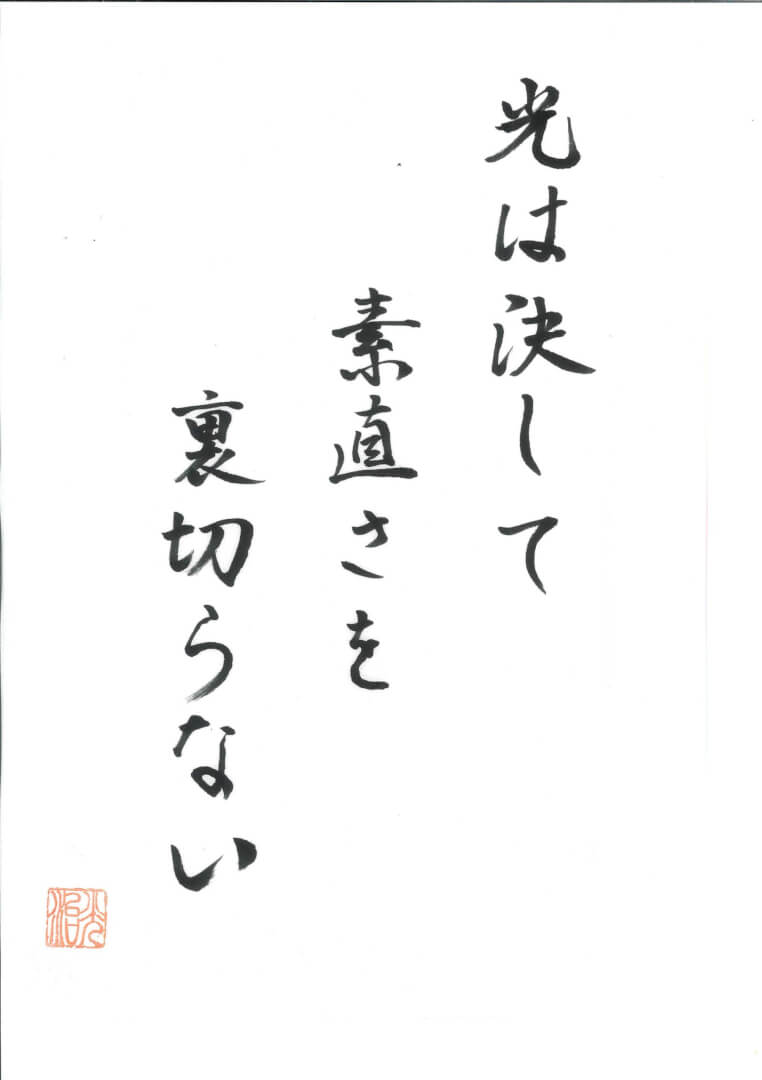 光は決して
素直さを
裏切らない